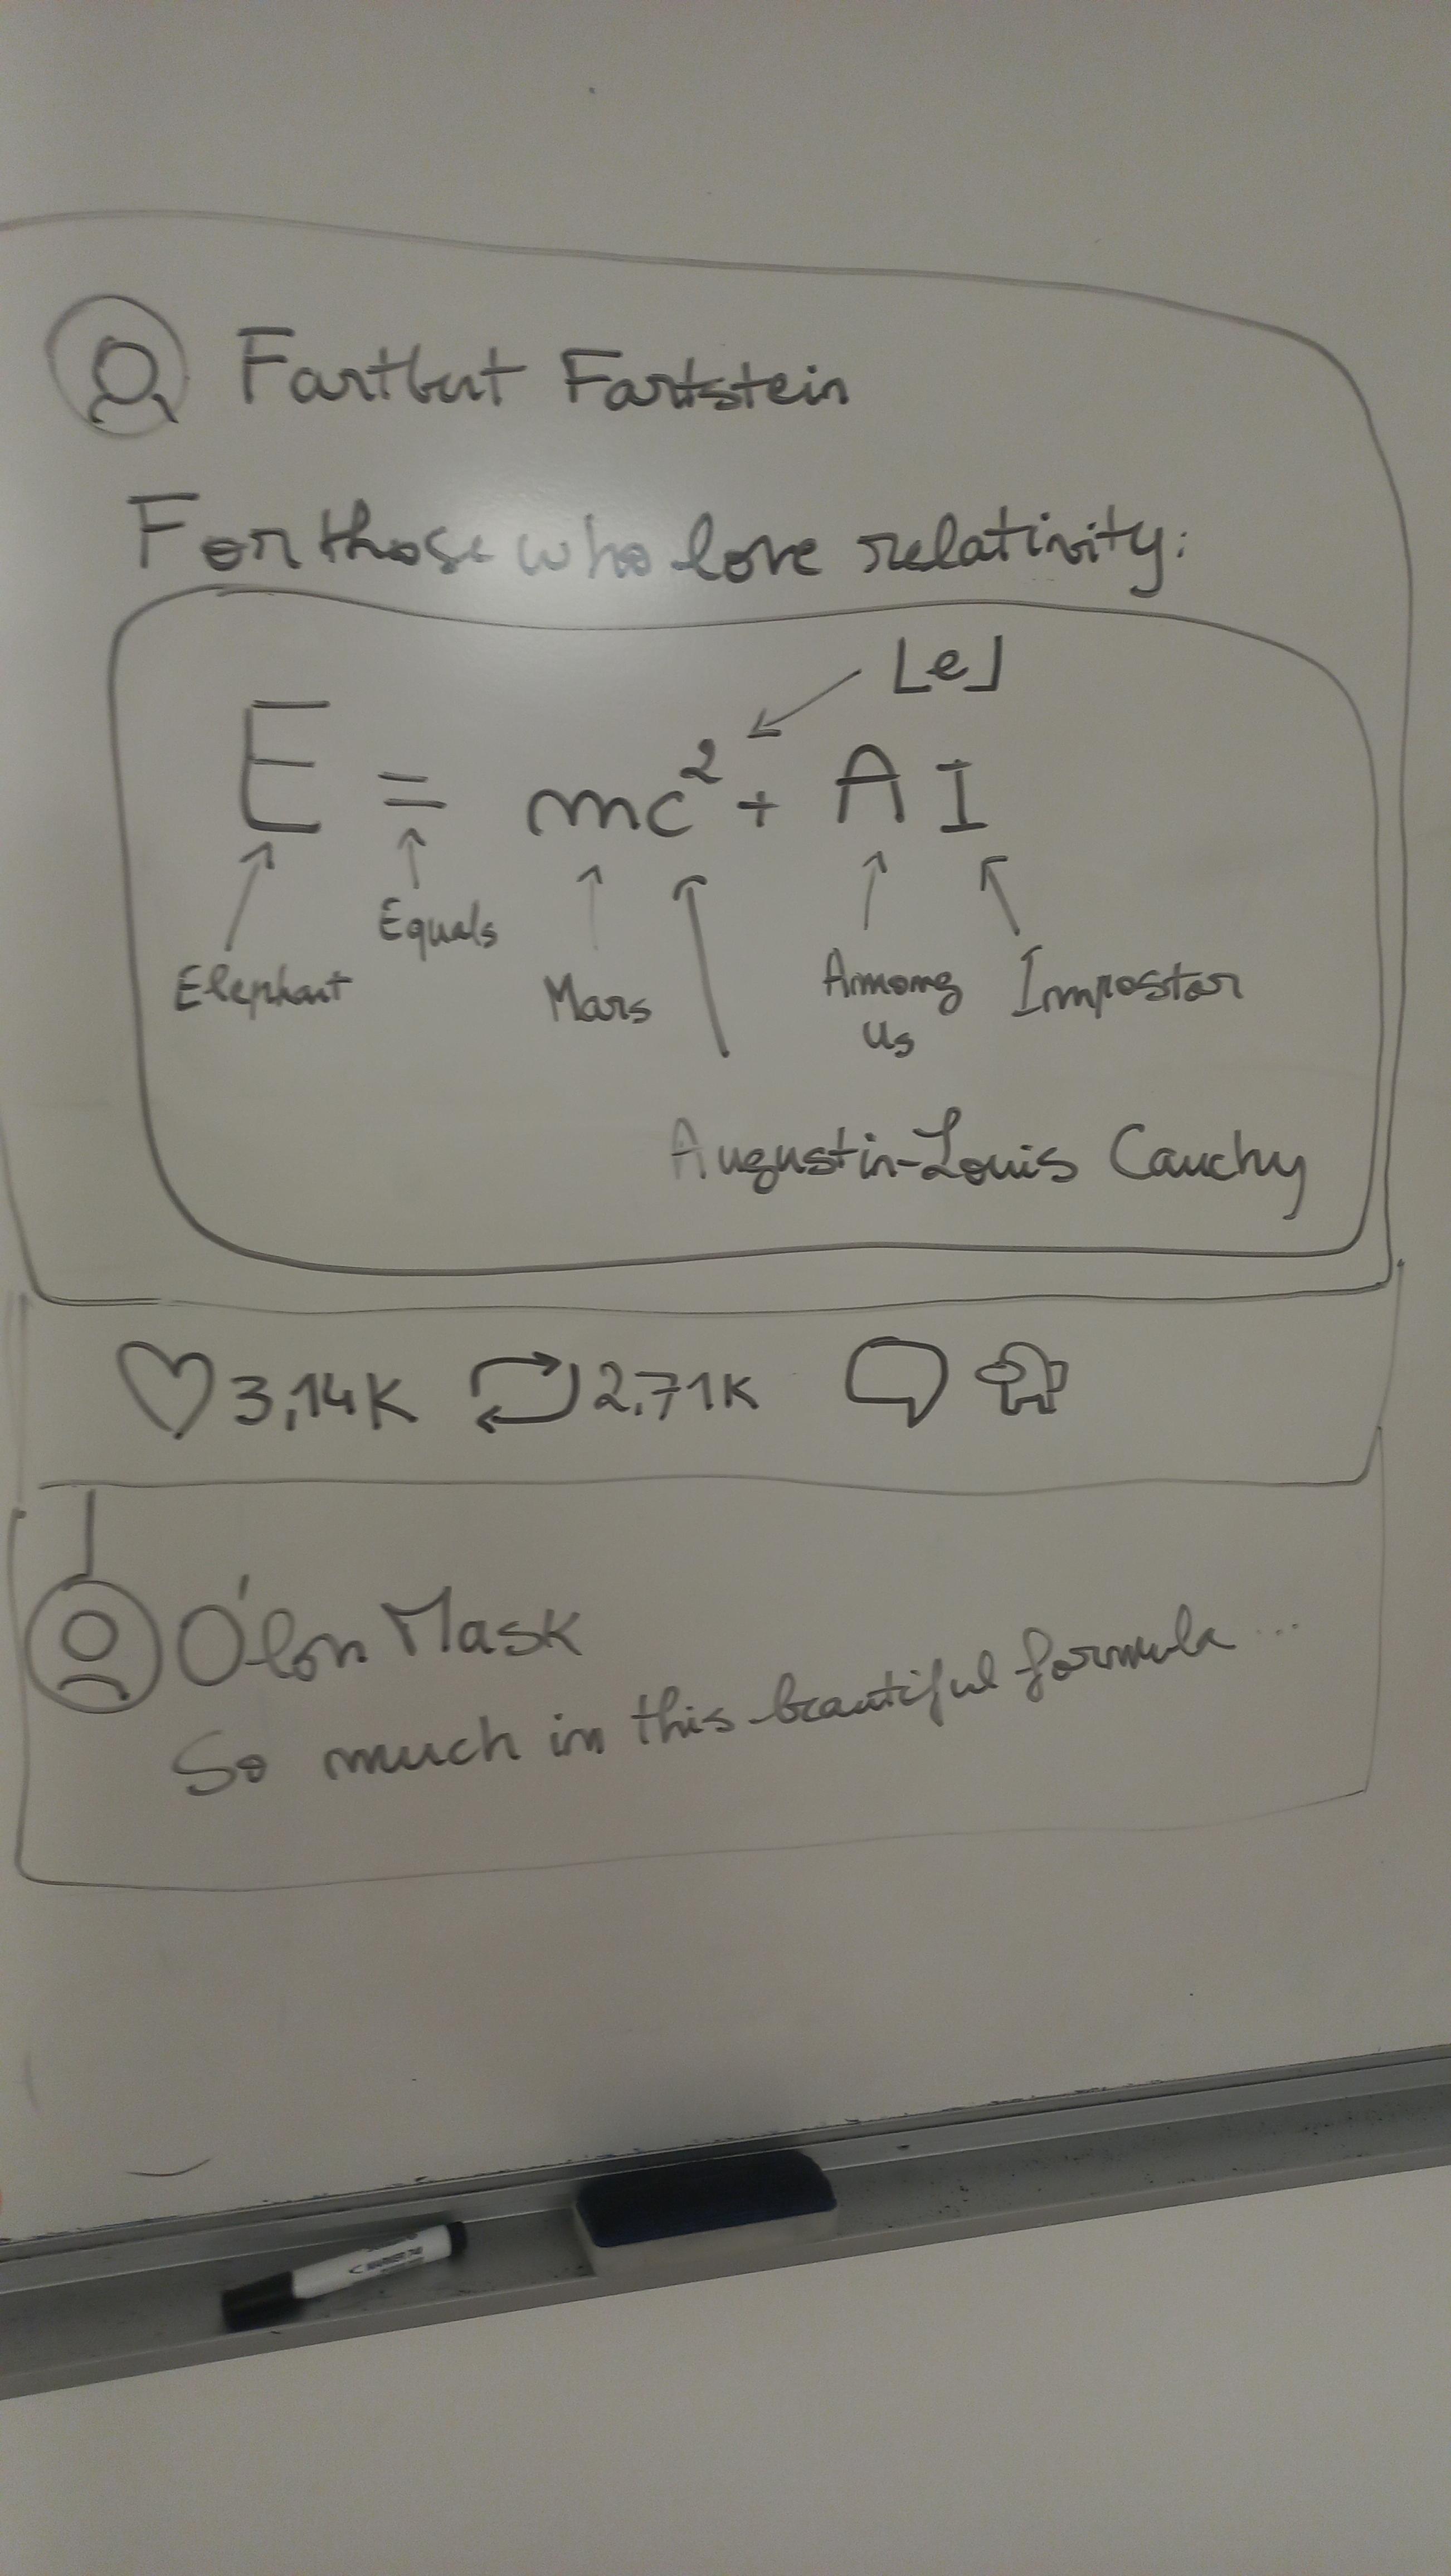 Fartbut Fartstein
For those who love relativity:
⌊e⌋
E = mc² + AI
Equals
Elephant
Mars
Among
Us
Impostor
Augustin-Louis Cauchy
3,14K 2,71K
O'lon Mask
So much in this beautiful formula...